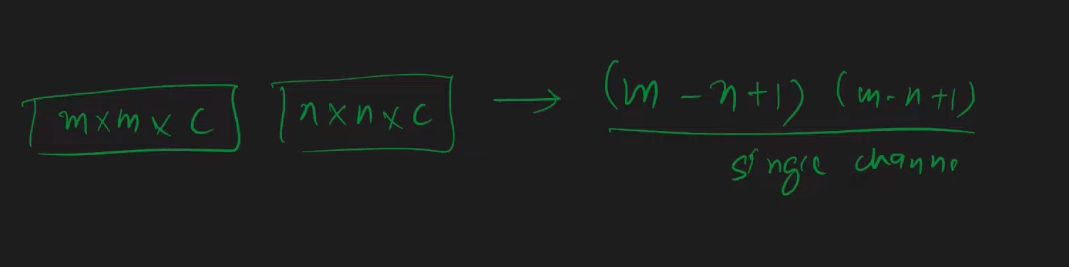 m×m×c n×n×c → (m-n+1) (m-n+1)
single channe